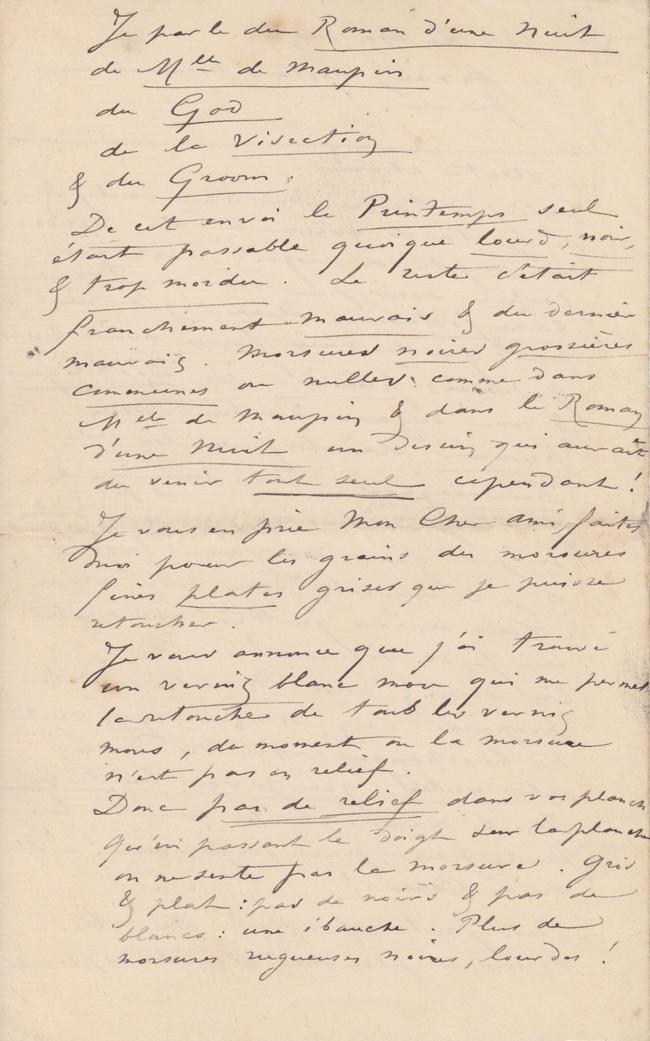 Je parle du Roman d'une Nuit
de Mlle de Maupin
du God
de la Visection
& du Groom.
De cet envoi le Printemps seul
était passable quoique lourd, noir,
& trop mordu. Le reste c'était
franchement mauvais & du dernier
mauvais. Morsures noires grossières
communes ou nulles comme dans
Mlle de Maupin & dans le Roman
d'une Nuit un dessin qui aurait
du venir tout seul cependant !
Je vous en prie Mon Cher ami, faites
moi pour les grains des morsures
fines plates grises que je puisse
retoucher.
Je vous annonce que j'ai trouvé
un vernis blanc mou qui me permet
la retouche de tous les vernis
mous, du moment ou la morsure
n'est pas en relief.
Donc pas de relief dans vos planches
qu'en passant le doigt sur la planche
on ne sente pas la morsure. Gris
& plat : pas de noirs & pas de
blancs : une ébauche. Plus de
morsures rugueuses noires, lourdes !